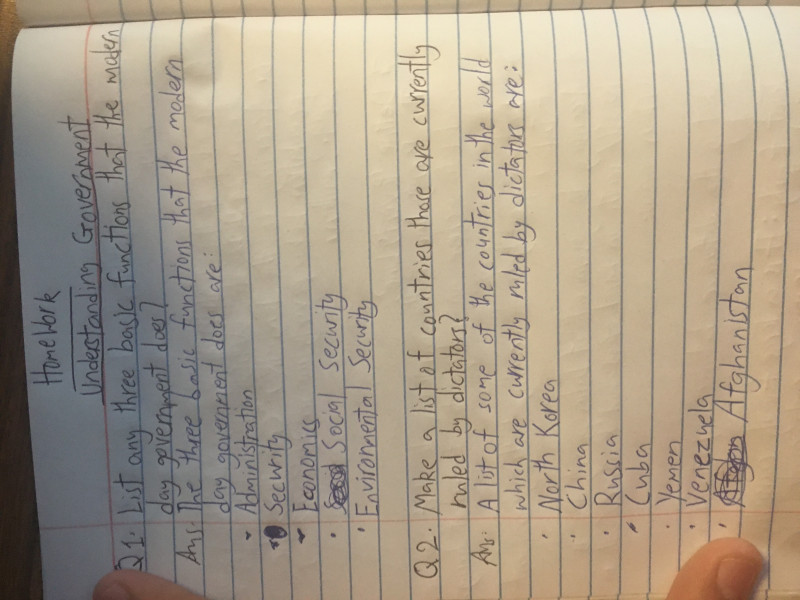 HomeWork
Understanding Government
Q1. List any three basic functions that the modern
day government does?
Ans: The three basic functions that the modern
day government does are:
• Administration
• Security
• Economics
• Social Security
• Environmental Security
Q2. Make a list of countries those are currently
ruled by dictators?
Ans: A list of some of the countries in the world
which are currently ruled by dictators are:
• North Korea
• China
• Russia
• Cuba
• Yemen
• Venezuela
• Afghanistan